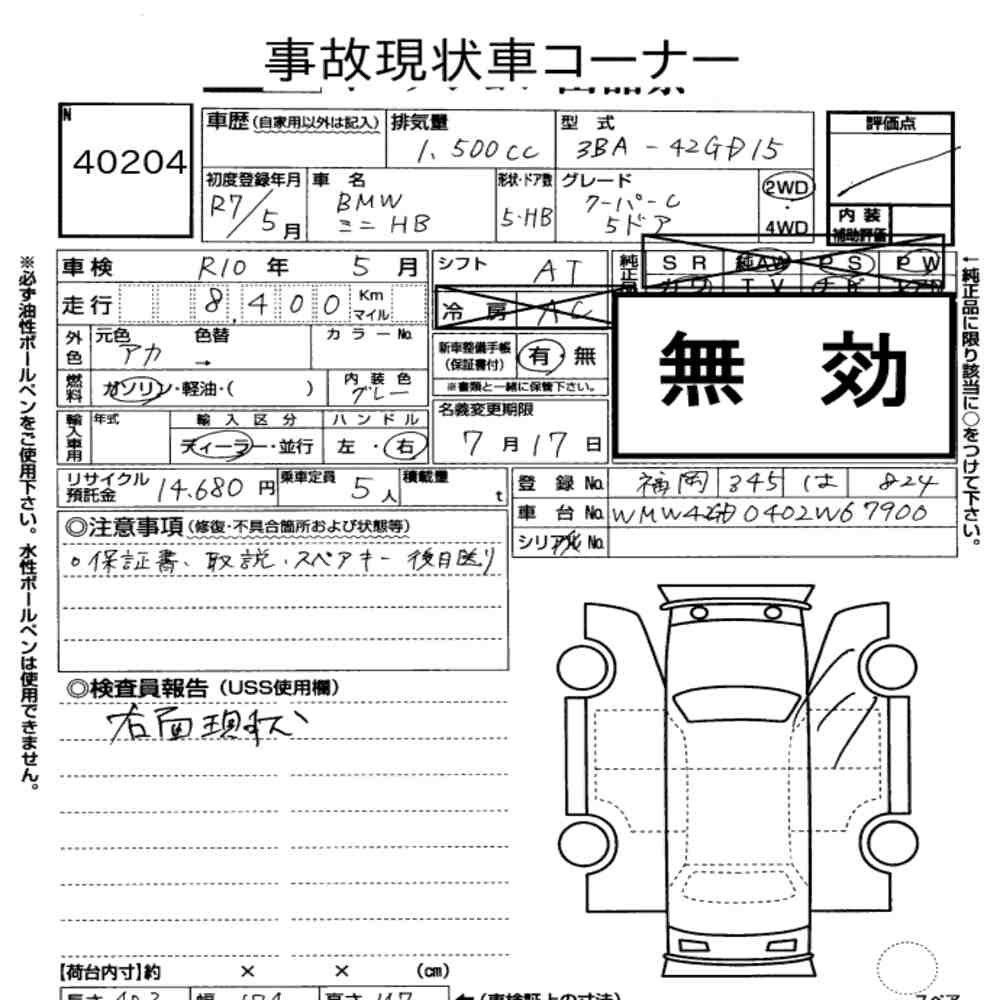 事故現状車コーナー
N
40204
車歴(自家用以外は記入)
排気量
1,500cc
型式
3BA-42GD15
評価点
初度登録年月
R7/5月
車名
BMW
ミニ HB
形状・ドア数
5・HB
グレード
クーパーC
5ドア
2WD
・
4WD
内装
補助評価
車検 R10年 5月
シフト AT
純正品
SR 純AW PS PW
走行 8,400 Km
マイル
冷房 AC
無効
外色
元色 色替 カラーNo.
アカ →
新車整備手帳
(保証書付)
有・無
※書類と一緒に保管下さい。
燃料
ガソリン・軽油・( )
内装色
グレー
名義変更期限
7月17日
輸入車用
年式
輸入区分
ディーラー・並行
ハンドル
左・右
リサイクル
預託金
14,680円
乗車定員
5人
積載量
t
登録No. 福岡 345 は 824
車台No. WMW42GD0402W67900
シリアルNo.
◎注意事項(修復・不具合箇所および状態等)
○保証書、取説、スペアキー 後日送り
◎検査員報告(USS使用欄)
右面現状
【荷台内寸】約 × × (cm)
長さ 403 幅 174 高さ 147 ←(車検証上の寸法)
スペア
※必ず油性ボールペンをご使用下さい。水性ボールペンは使用できません。
←純正品に限り該当に○をつけて下さい。